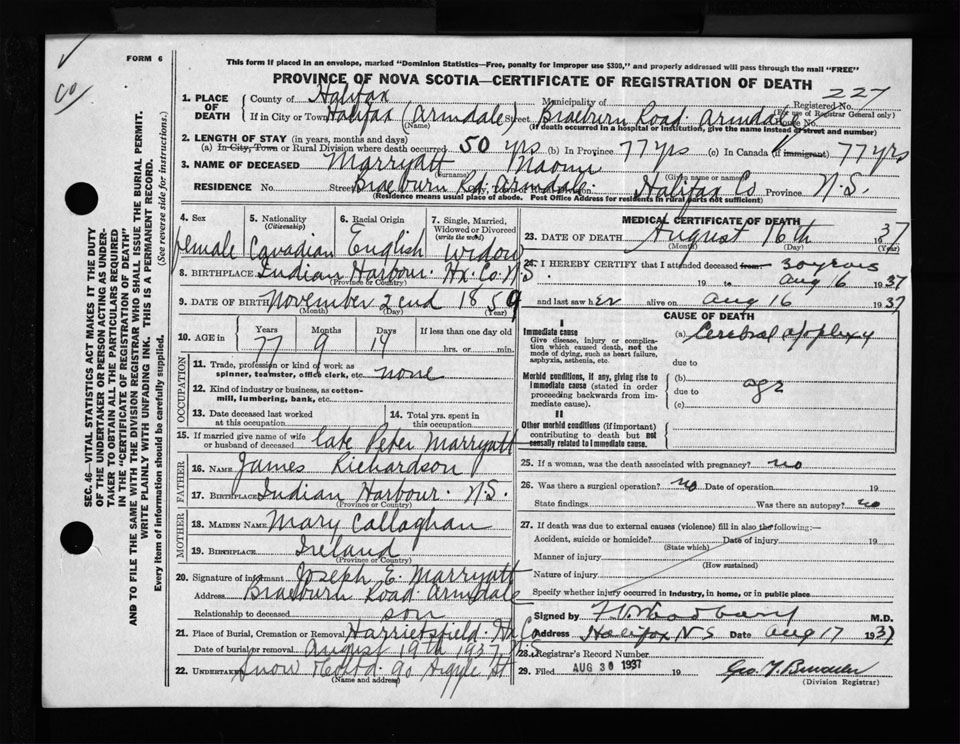 FORM 6
CO
This form if placed in an envelope, marked "Dominion Statistics—Free, penalty for improper use $300," and properly addressed will pass through the mail "FREE"
PROVINCE OF NOVA SCOTIA—CERTIFICATE OF REGISTRATION OF DEATH
SEC. 46—VITAL STATISTICS ACT MAKES IT THE DUTY
OF THE UNDERTAKER OR PERSON ACTING AS UNDER-
TAKER TO OBTAIN ALL THE PARTICULARS REQUIRED
IN THE "CERTIFICATE OF REGISTRATION OF DEATH"
AND TO FILE THE SAME WITH THE DIVISION REGISTRAR WHO SHALL ISSUE THE BURIAL PERMIT.
WRITE PLAINLY WITH UNFADING INK. THIS IS A PERMANENT RECORD.
Every item of information should be carefully supplied. (See reverse side for instructions.)
1. PLACE OF DEATH County of Halifax Municipality of Registered No. 227
(For use of Registrar General only)
If in City or Town Halifax (Armdale) Street Braeburn Road Armdale House No.
(Name) (If death occurred in a hospital or institution, give the name instead of street and number)
2. LENGTH OF STAY (in years, months and days)
(a) In City, Town or Rural Division where death occurred 50 yrs (b) In Province 77 yrs (c) In Canada (if immigrant) 77 yrs
3. NAME OF DECEASED Marryatt Naomi
(Surname) (Given name or names)
RESIDENCE No. Street Braeburn Rd. Armdale Halifax Co Province N.S.
(Residence means usual place of abode. Post Office Address for residents in rural parts not sufficient)
4. Sex 5. Nationality (Citizenship) 6. Racial Origin 7. Single, Married, Widowed or Divorced (write the word)
female Canadian English Widow
8. BIRTHPLACE Indian Harbour. Hx. Co. N.S.
(Province or Country)
9. DATE OF BIRTH November 22nd 1859
(Month) (Day) (Year)
10. AGE in Years Months Days If less than one day
77 9 14 hrs. or min.
OCCUPATION
11. Trade, profession or kind of work as spinner, teamster, office clerk, etc. none
12. Kind of industry or business, as cotton-mill, lumbering, bank, etc.
13. Date deceased last worked at this occupation 14. Total yrs. spent in this occupation
15. If married give name of wife or husband of deceased late Peter Marryatt
FATHER
16. NAME James Richardson
17. BIRTHPLACE Indian Harbour. N.S.
(Province or Country)
MOTHER
18. MAIDEN NAME Mary Callaghan
19. BIRTHPLACE Ireland
(Province or Country)
20. Signature of informant Joseph E. Marryatt
Address Braeburn Road Armdale
Relationship to deceased son
21. Place of Burial, Cremation or Removal Harrietsfield. Hx Co
Date of burial or removal August 19th 1937
22. Undertaker Snow & Co Ltd. 90 Argyle St
(Name and address)
MEDICAL CERTIFICATE OF DEATH
23. DATE OF DEATH August 16th 1937
(Month) (Day) (Year)
24. I HEREBY CERTIFY that I attended deceased from 30 years
19 to Aug 16 1937
and last saw her alive on Aug 16 1937
CAUSE OF DEATH
I
Immediate cause
Give disease, injury or complica-
tion which caused death, not the
mode of dying, such as heart failure,
asphyxia, asthenia, etc.
(a) Cerebral apoplexy
due to
Morbid conditions, if any, giving rise to
immediate cause (stated in order
proceeding backwards from im-
mediate cause).
(b) age
due to
(c)
II
Other morbid conditions (if important)
contributing to death but not
causally related to immediate cause.
25. If a woman, was the death associated with pregnancy? no
26. Was there a surgical operation? no Date of operation 19
State findings Was there an autopsy? no
27. If death was due to external causes (violence) fill in also the following:—
Accident, suicide or homicide? Date of injury 19
(State which)
Manner of injury
(How sustained)
Nature of injury
Specify whether injury occurred in industry, in home, or in public place
Signed by M.D.
Address Halifax N S Date Aug 17 1937
28. Registrar's Record Number
29. Filed AUG 30 1937 19
(Division Registrar)